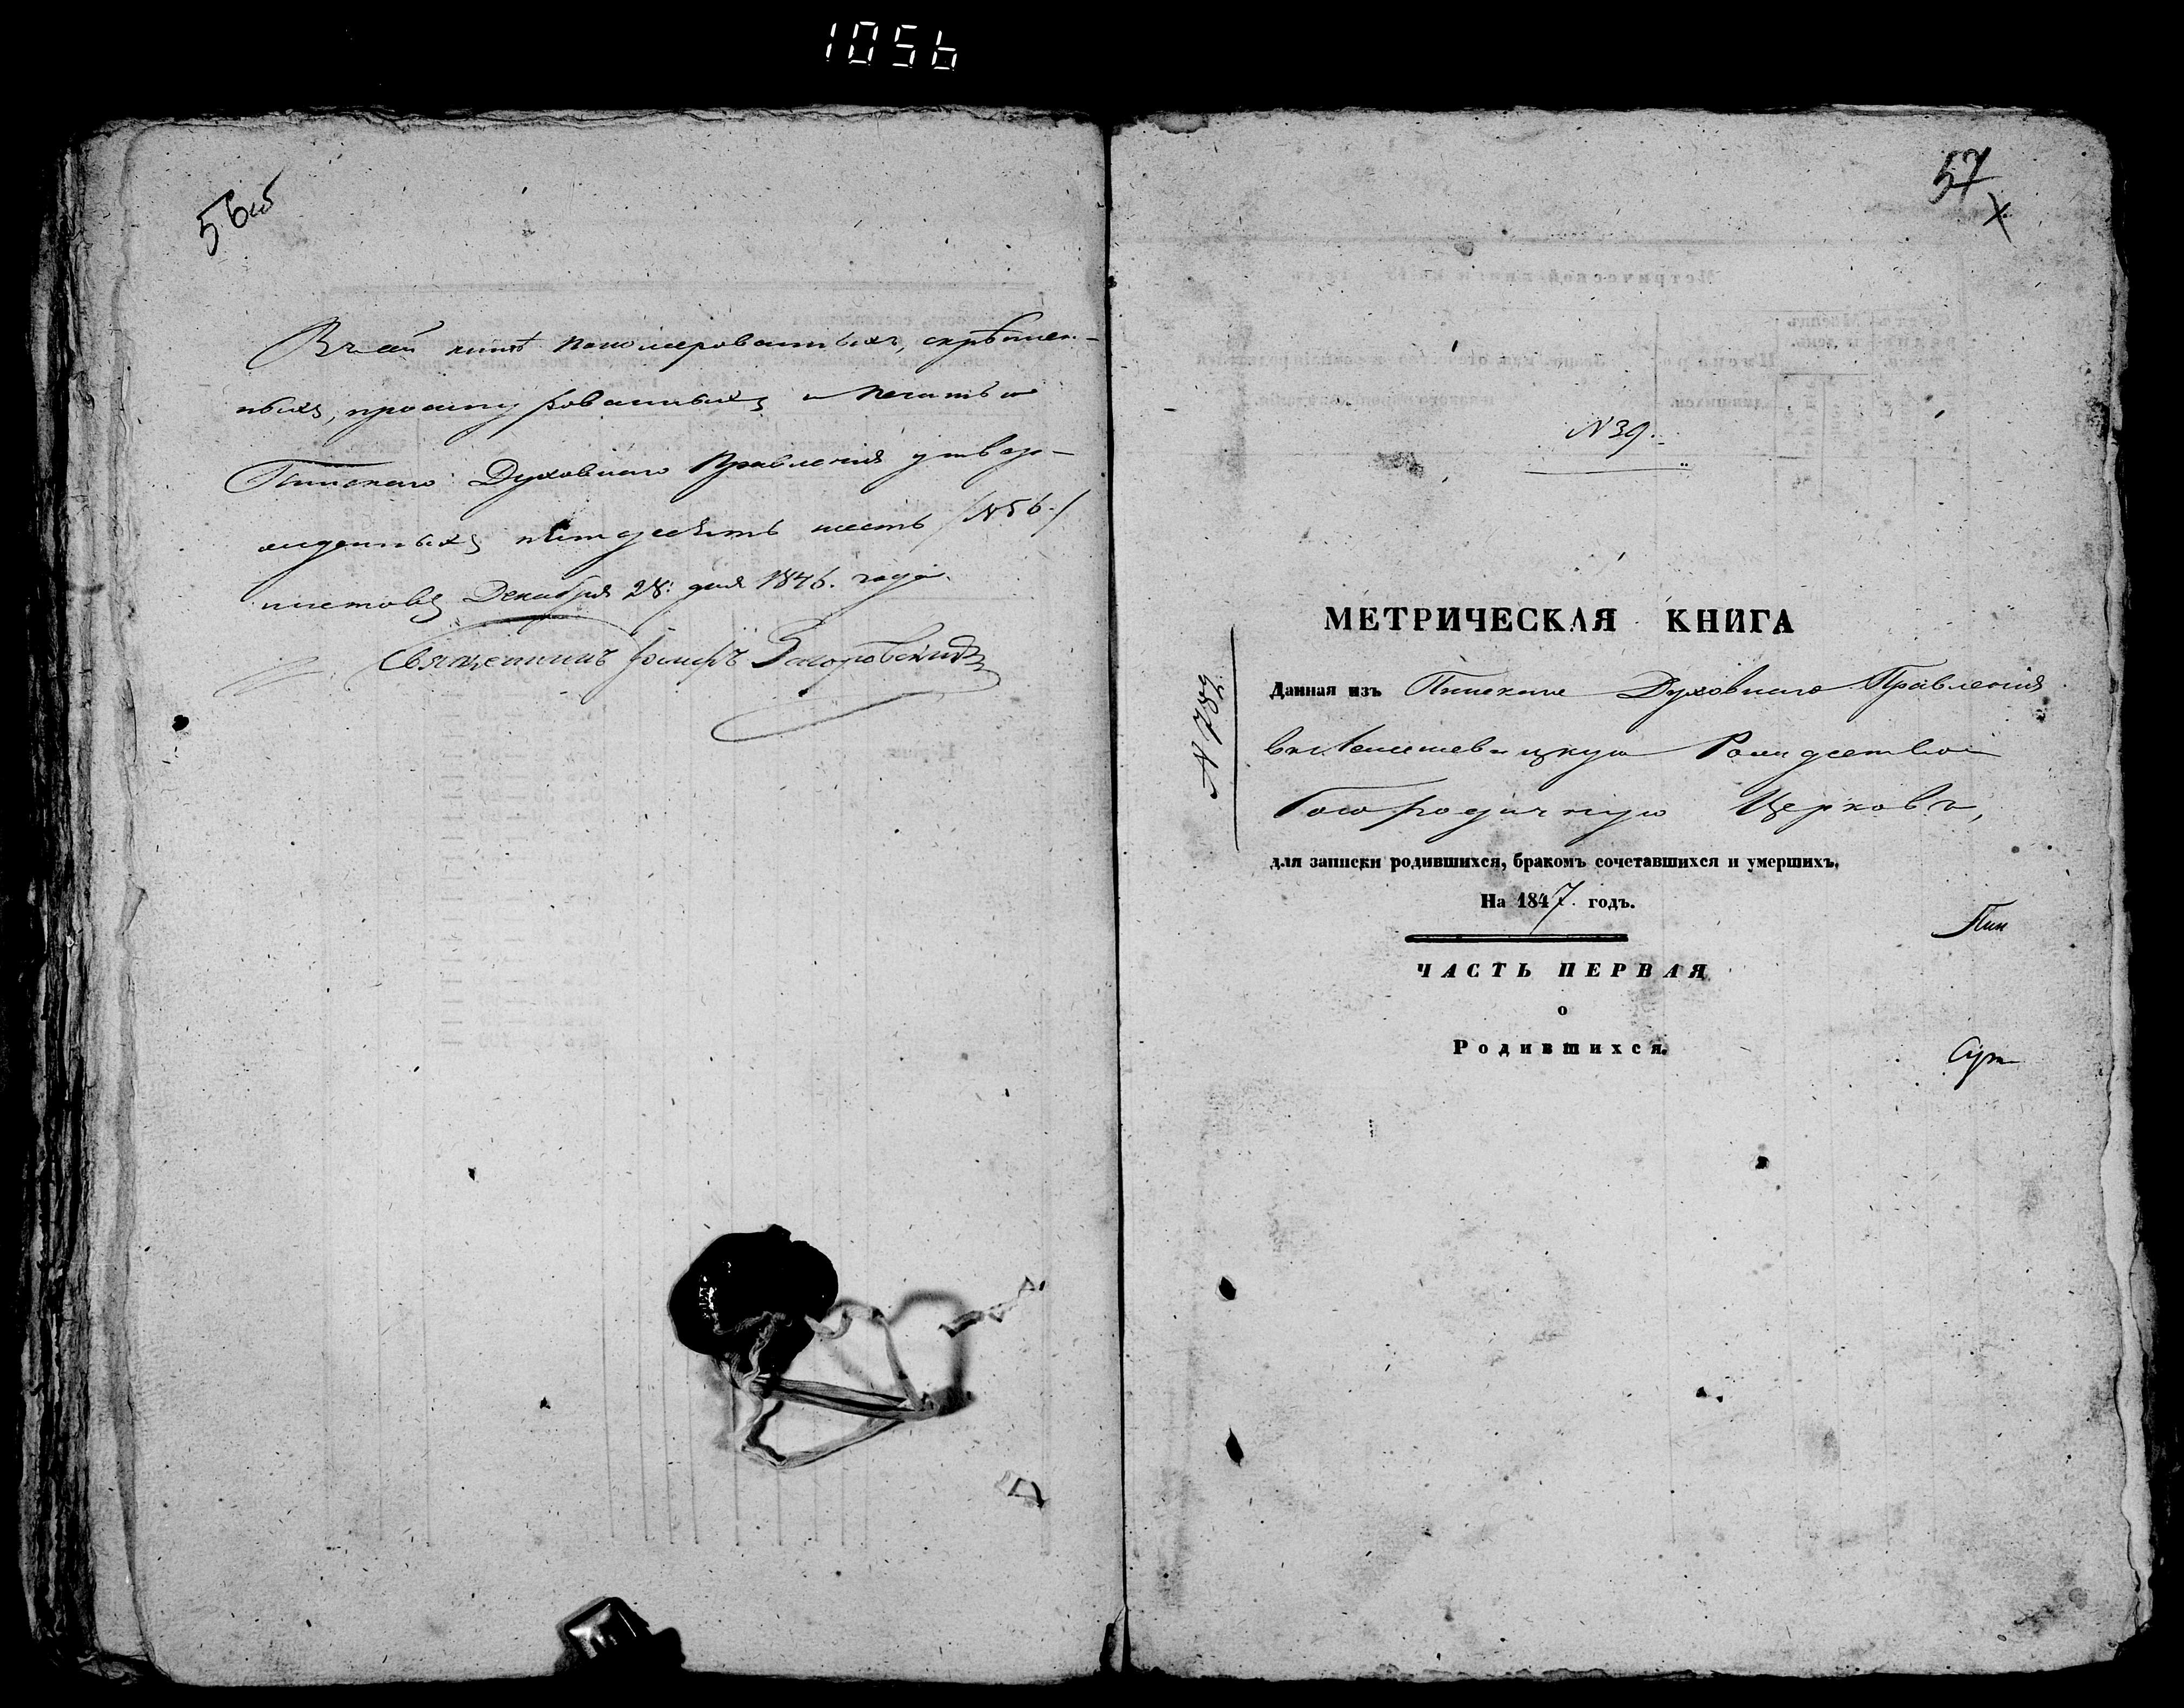 1056
56об
Въ сей книгѣ нономерованныхъ, скрѣплен-
ныхъ, прошнурованныхъ и печатью
Пинскаго Духовнаго Правленія утвер-
жденныхъ пятдесятъ шесть /№ 56./
листовъ Декабря 28. дня 1846. года.
Священникъ
57
№ 39.
№ 782
МЕТРИЧЕСКАЯ КНИГА
Данная изъ Пинскаго Духовнаго Правленія
Рождество
Богородичную Церковь,
для записки родившихся, бракомъ сочетавшихся и умершихъ.
На 1847 годъ.
Пин
ЧАСТЬ ПЕРВАЯ
о
Родившихся.